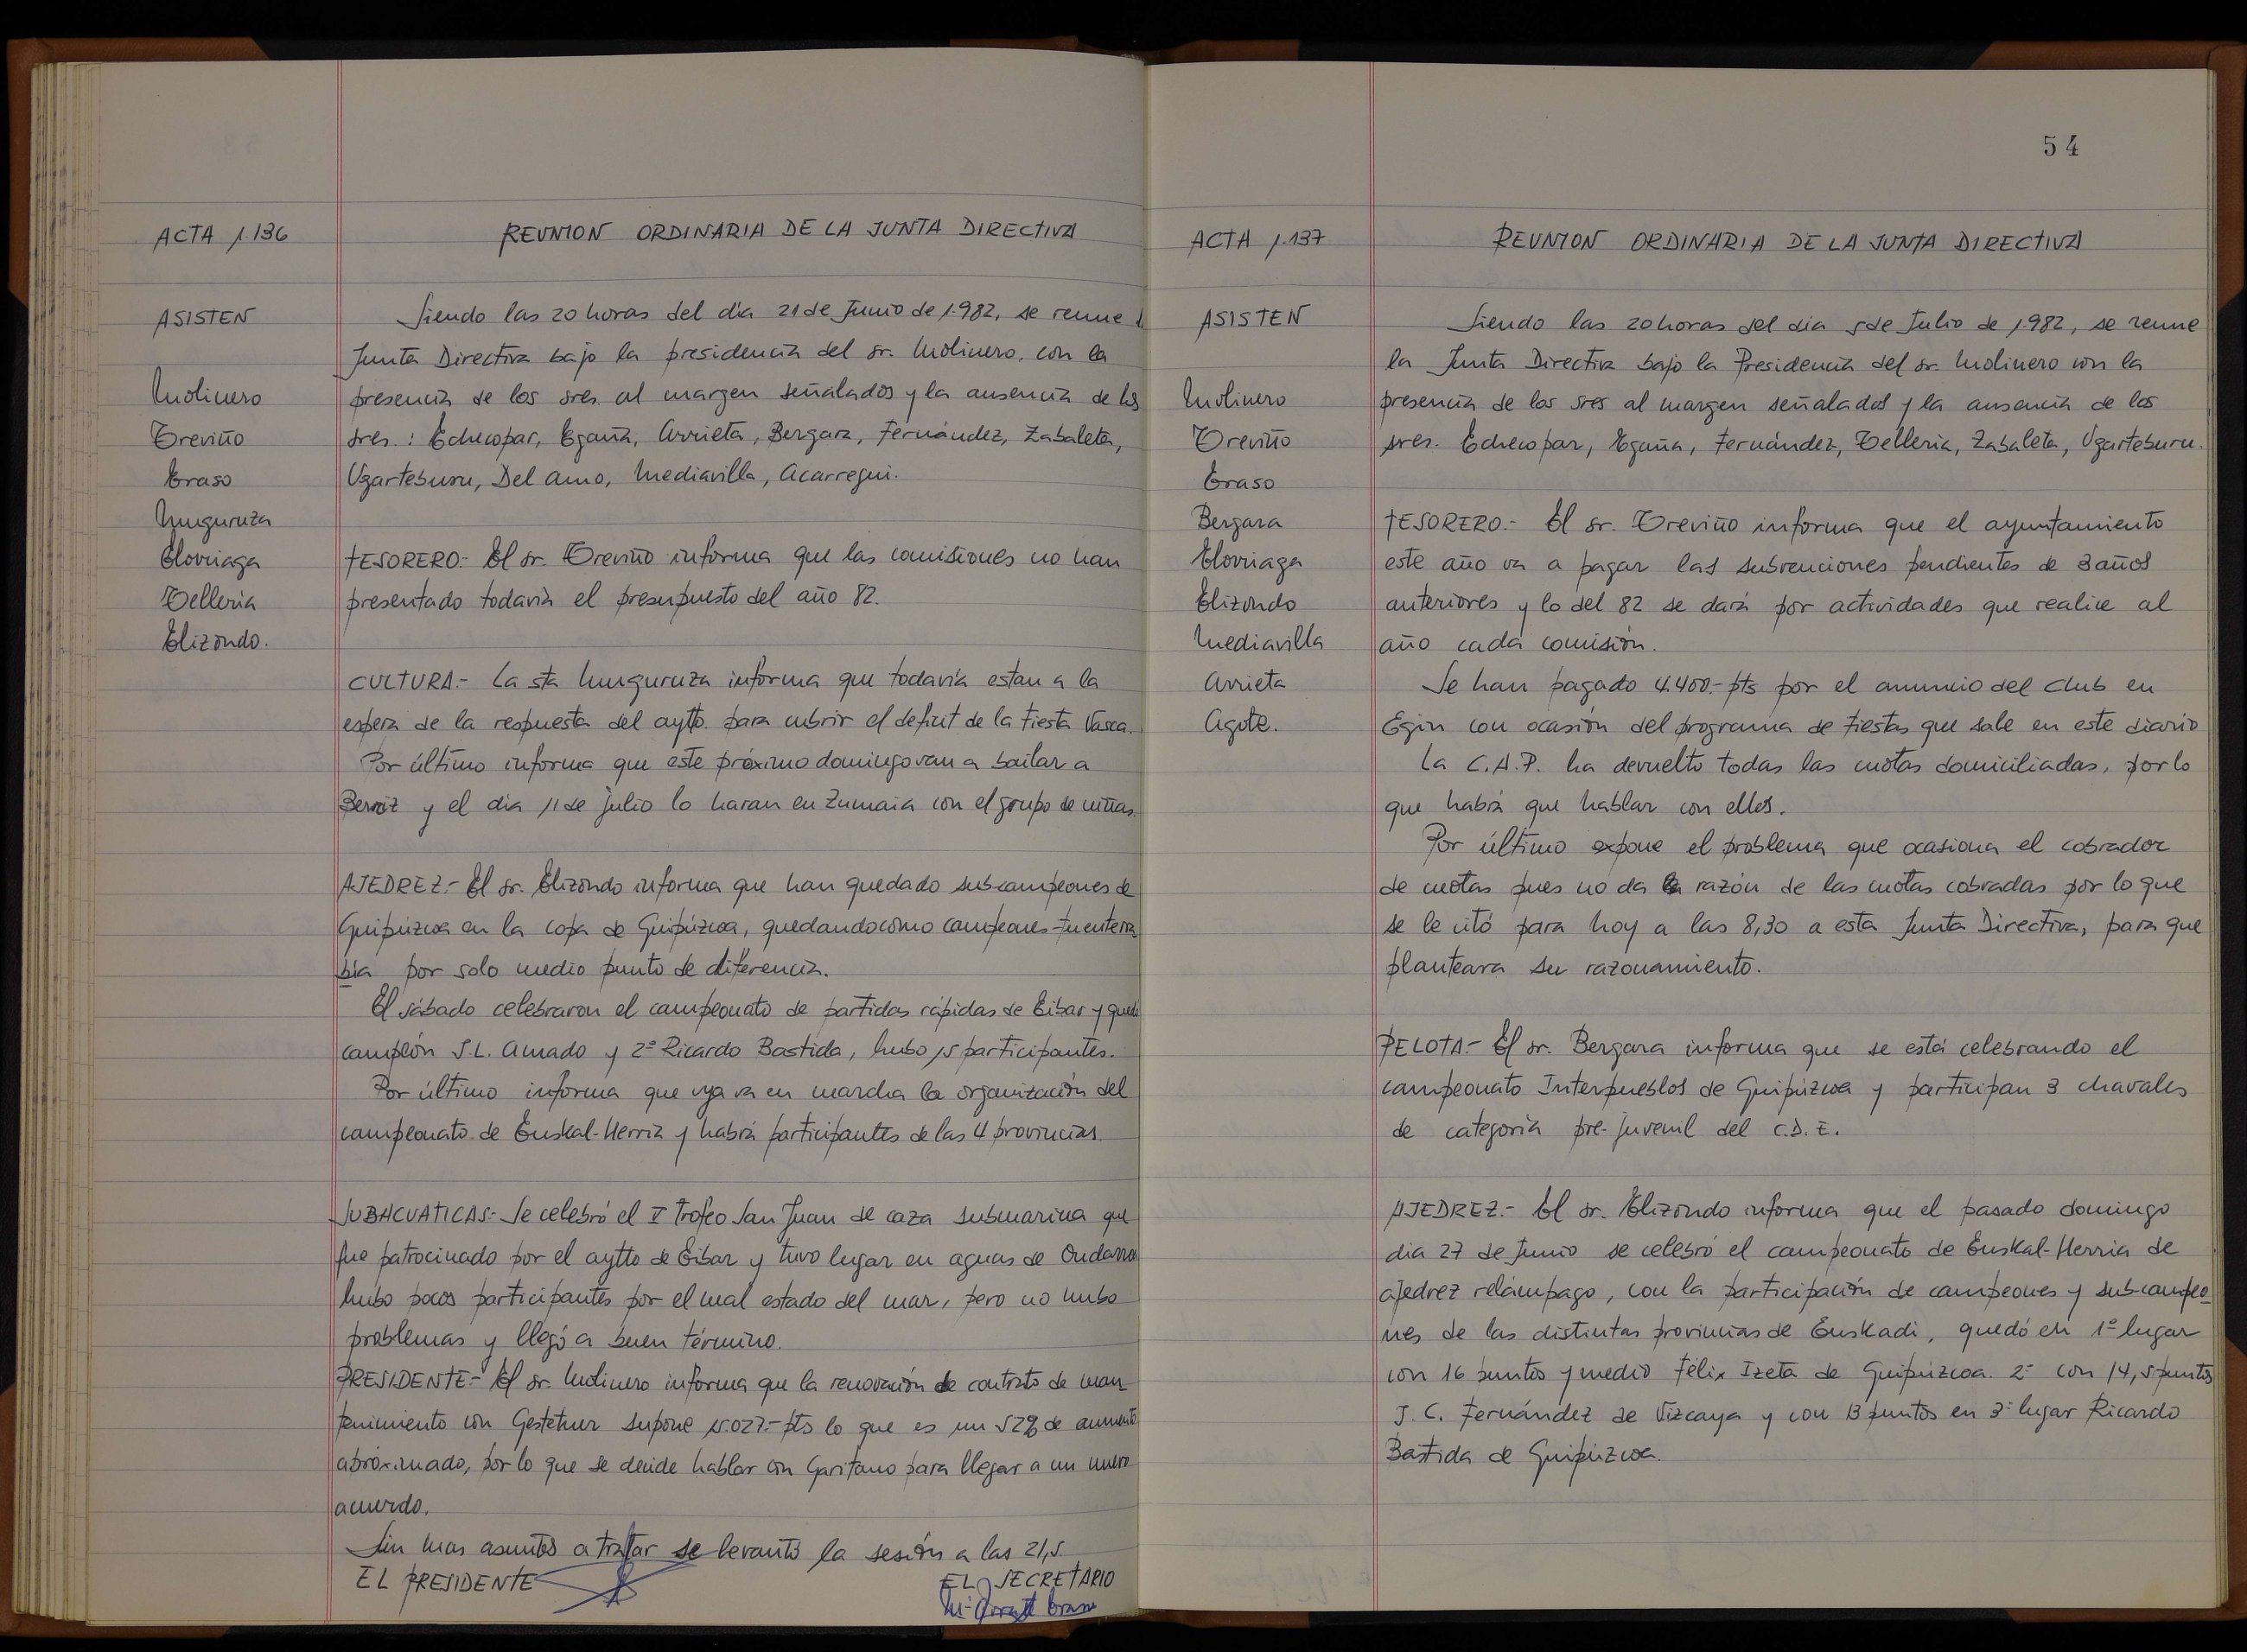 ACTA 1.136
REUNION ORDINARIA DE LA JUNTA DIRECTIVA
ASISTEN
Molinero
Treviño
Eraso
Muguruza
Elorriaga
Telleria
Elizondo.
Siendo las 20 horas del día 21 de Junio de 1.982, se reune
Junta Directiva bajo la presidencia del sr. Molinero, con la
presencia de los sres. al margen señalados y la ausencia de los
sres. : Echecopar, Egaña, Arrieta, Bergara, Fernández, Zabaleta,
Ugarteburu, Del Amo, Mediavilla, Acarregui.
TESORERO.- El sr. Treviño informa que las comisiones no han
presentado todavía el presupuesto del año 82.
CULTURA.- La sta Muguruza informa que todavía estan a la
espera de la respuesta del aytto. para cubrir el deficit de la Fiesta Vasca.
Por último informa que este próximo domingo van a bailar a
Berriz y el día 11 de Julio lo haran en Zumaia con el grupo de niñas.
AJEDREZ.- El sr. Elizondo informa que han quedado subcampeones de
Guipúzcoa en la copa de Guipúzcoa, quedando como campeones Fuenterra
bía por solo medio punto de diferencia.
El sábado celebraron el campeonato de partidas rápidas de Eibar y quedó
campeón J.L. Amado y 2º Ricardo Bastida, hubo 15 participantes.
Por último informa que ya va en marcha la organización del
campeonato de Euskal-Herria y habrá participantes de las 4 provincias.
SUBACUATICAS.- Se celebró el V Trofeo San Juan de caza submarina que
fue patrocinado por el aytto de Eibar y tuvo lugar en aguas de Ondarroa
hubo pocos participantes por el mal estado del mar, pero no hubo
problemas y llegó a buen término.
PRESIDENTE.- El sr. Molinero informa que la renovación de contrato de man
tenimiento con Gestetner supone 15.027.- pts lo que es un 52% de aumento
aproximado, por lo que se decide hablar con Garitano para llegar a un nuevo
acuerdo.
Sin mas asuntos a tratar se levantó la sesión a las 21,5.
EL PRESIDENTE
EL SECRETARIO
54
ACTA 1.137
REUNION ORDINARIA DE LA JUNTA DIRECTIVA
ASISTEN
Molinero
Treviño
Eraso
Bergara
Elorriaga
Elizondo
Mediavilla
Arrieta
Agote.
Siendo las 20 horas del día 5 de Julio de 1.982, se reune
la Junta Directiva bajo la Presidencia del sr. Molinero con la
presencia de los sres al margen señalados y la ausencia de los
sres. Echecopar, Egaña, Fernández, Telleria, Zabaleta, Ugarteburu.
TESORERO.- El sr. Treviño informa que el ayuntamiento
este año va a pagar las subvenciones pendientes de 3 años
anteriores y lo del 82 se dará por actividades que realice al
año cada comisión.
Se han pagado 4.400.- pts por el anuncio del club en
Egin con ocasión del programa de fiestas que sale en este diario
La C.A.P. ha devuelto todas las cuotas domiciliadas, por lo
que habrá que hablar con ellos.
Por último expone el problema que ocasiona el cobrador
de cuotas pues no da la razón de las cuotas cobradas por lo que
se le citó para hoy a las 8,30 a esta Junta Directiva, para que
planteara su razonamiento.
PELOTA.- El sr. Bergara informa que se está celebrando el
campeonato Interpueblos de Guipúzcoa y participan 3 chavales
de categoría pre-juvenil del C.D.E.
AJEDREZ.- El sr. Elizondo informa que el pasado domingo
dia 27 de Junio se celebró el campeonato de Euskal-Herria de
ajedrez relámpago, con la participación de campeones y sub-campeo
nes de las distintas provincias de Euskadi, quedó en 1º lugar
con 16 puntos y medio Félix Izeta de Guipúzcoa. 2º con 14,5 puntos
J. C. Fernández de Vizcaya y con 13 puntos en 3º lugar Ricardo
Bastida de Guipúzcoa.